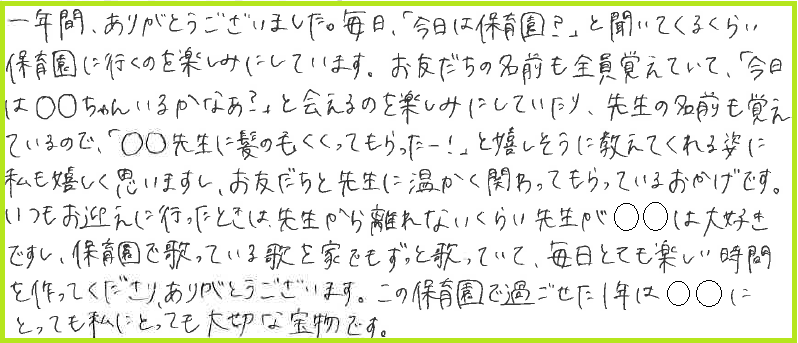 一年間、ありがとうございました。毎日、「今日は保育園？」と聞いてくるくらい
保育園に行くのを楽しみにしています。お友だちの名前も全員覚えていて、「今日
は○○ちゃんいるかなあ？」と会えるのを楽しみにしていたり、先生の名前も覚え
ているので、「○○先生に髪の毛くくってもらったー！」と嬉しそうに教えてくれる姿に
私も嬉しく思いますし、お友だちと先生に温かく関わってもらっているおかげです。
いつもお迎えに行ったときは、先生から離れないくらい先生が○○は大好き
ですし、保育園で歌っている歌を家でもずっと歌っていて、毎日とても楽しい時間
を作ってくださり、ありがとうございます。この保育園で過ごせた1年は○○に
とっても私にとっても大切な宝物です。